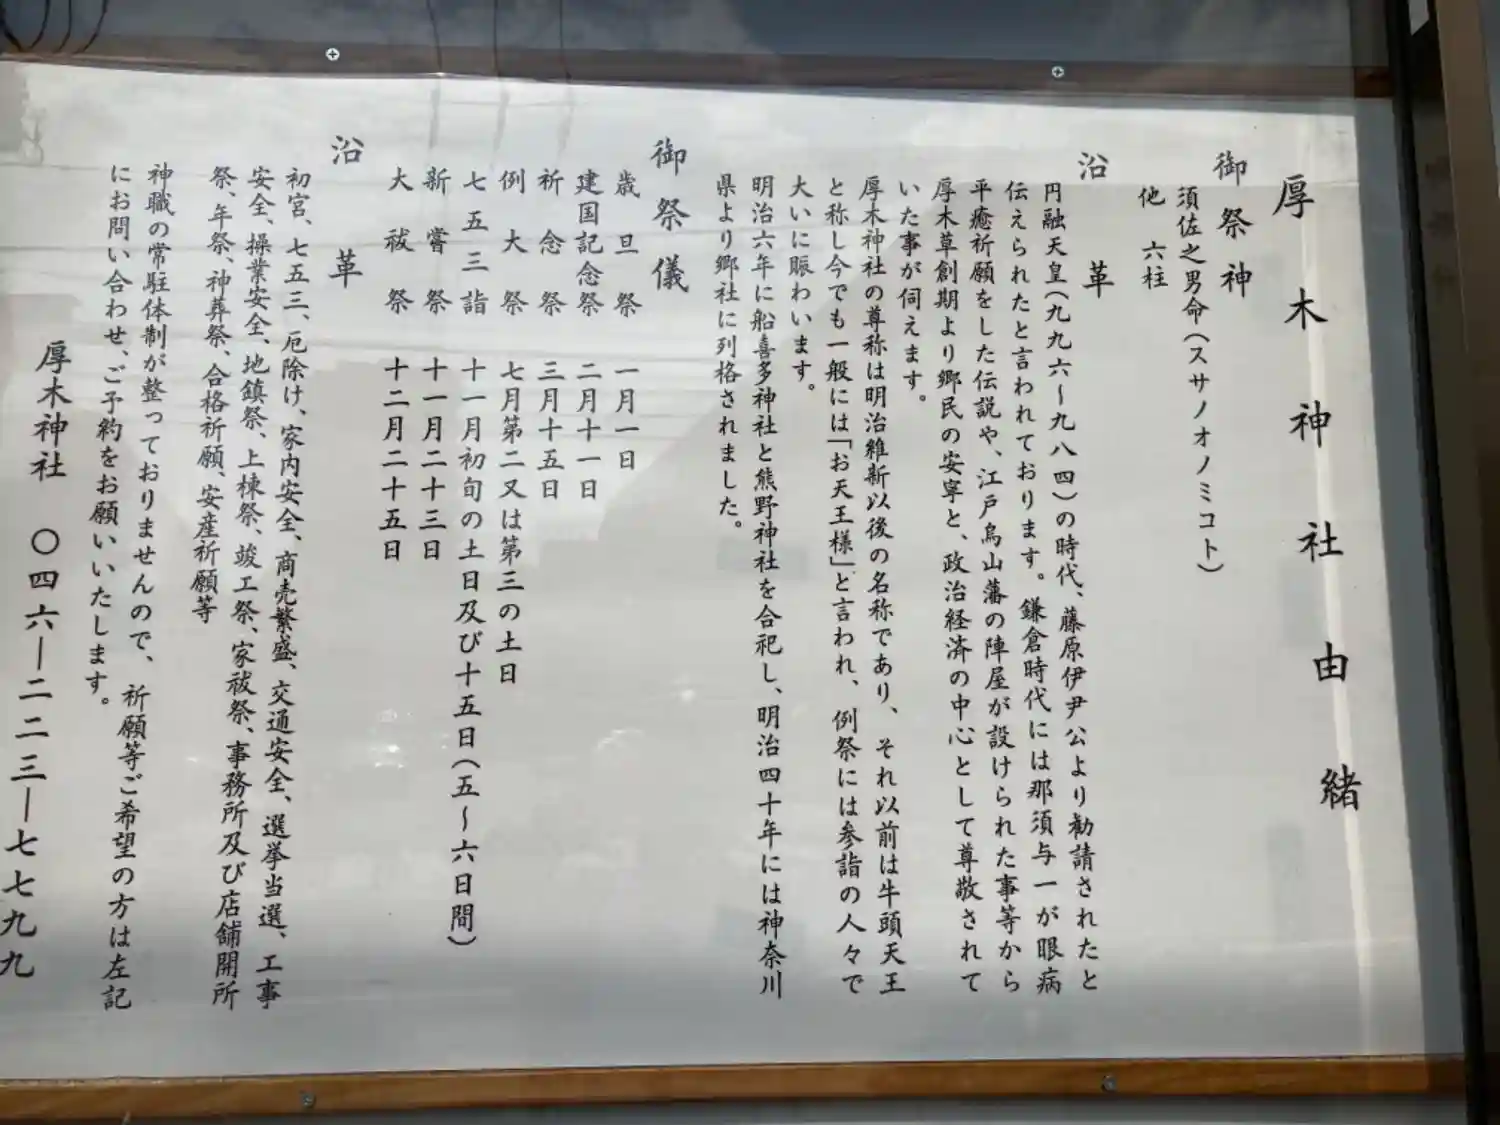 厚木神社由緒
御祭神
須佐之男命（スサノオノミコト）
他 六柱
沿革
円融天皇（九九六～九八四）の時代、藤原伊尹公より勧請されたと
伝えられたと言われております。鎌倉時代には那須与一が眼病
平癒祈願をした伝説や、江戸烏山藩の陣屋が設けられた事等から
厚木草創期より郷民の安寧と、政治経済の中心として尊敬されて
いた事が伺えます。
厚木神社の尊称は明治維新以後の名称であり、それ以前は牛頭天王
と称し今でも一般には「お天王様」と言われ、例祭には参詣の人々で
大いに賑わいます。
明治六年に船喜多神社と熊野神社を合祀し、明治四十年には神奈川
県より郷社に列格されました。
御祭儀
歳旦祭 一月一日
建国記念祭 二月十一日
祈念祭 三月十五日
例大祭 七月第二又は第三の土日
七五三詣 十一月初旬の土日及び十五日（五～六日間）
新嘗祭 十一月二十三日
大祓祭 十二月二十五日
沿革
初宮、七五三、厄除け、家内安全、商売繁盛、交通安全、選挙当選、工事
安全、操業安全、地鎮祭、上棟祭、竣工祭、家祓祭、事務所及び店舗開所
祭、年祭、神葬祭、合格祈願、安産祈願等
神職の常駐体制が整っておりませんので、祈願等ご希望の方は左記
にお問い合わせ、ご予約をお願いいたします。
厚木神社 〇四六―二二三―七七九九